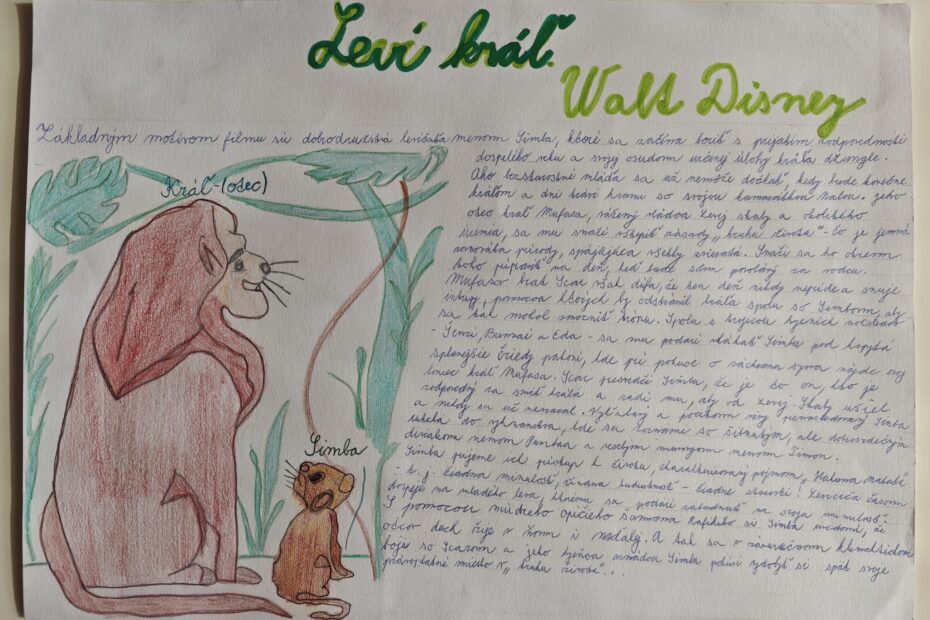 Leví kráľ
Walt Disney
Základným motívom filmu sú dobrodružstvá levíčaťa menom Simba, ktoré sa začína boriť s prijatím zodpovednosti
dospelého veku a svojej osudom určenej úlohy kráľa džungle.
Ako bezstarostné mláďa sa už nemôže dočkať, kedy bude konečne
kráľom a dni trávi hrami so svojou kamarátkou Nalou. Jeho
Kráľ-(otec)
otec kráľ Mufasa, vážený vládca Levej skaly a okolitého
územia, sa mu snaží vštepiť zásady "kruhu života" - čo je jemná
rovnováha prírody, spájajúca všetky zvieratá. Snaží sa ho okrem
toho pripraviť na deň, keď bude sám povolaný za vodcu.
Mufasov brat Scar však dúfa, že ten deň nikdy nepríde a snuje
intrigy, pomocou ktorých by odstránil kráľa spolu so Simbom, aby
sa tak mohol zmocniť trónu. Spolu s trojicou hyeních
- Senzi, Banzai a Eda - sa mu podarí vlákať Simbu pod kopytá
splašenej čriedy pakoní, kde pri pokuse o záchranu syna nájde svoj
koniec kráľ Mufasa. Scar presvedčí Simbu, že je to on, kto je
zodpovedný za smrť kráľa a radí mu, aby od Levej Skaly ušiel
a nikdy sa už nevracal. a pocitom viny Simba
uteká do vyhnanstva, kde sa zoznámi so ale dobrosrdečným
diviakom menom Pumbaa a menom Timon.
Simba
Simba prijme ich prístup k životu, pojmom "Hakuna Matata"
- t. j. žiadna minulosť, žiadna budúcnosť - žiadne starosti! časom
dospeje na mladého leva, ktorému sa podarí zabudnúť na svoju minulosť.
S pomocou múdreho opičieho šamana Rafikiho si Simba uvedomí, že
otcov duch žije v ňom i naďalej. A tak sa v záverečnom
boji so Scarom a jeho armádou Simba pokúsi vydobyť si späť svoje
miesto v "kruhu života"...